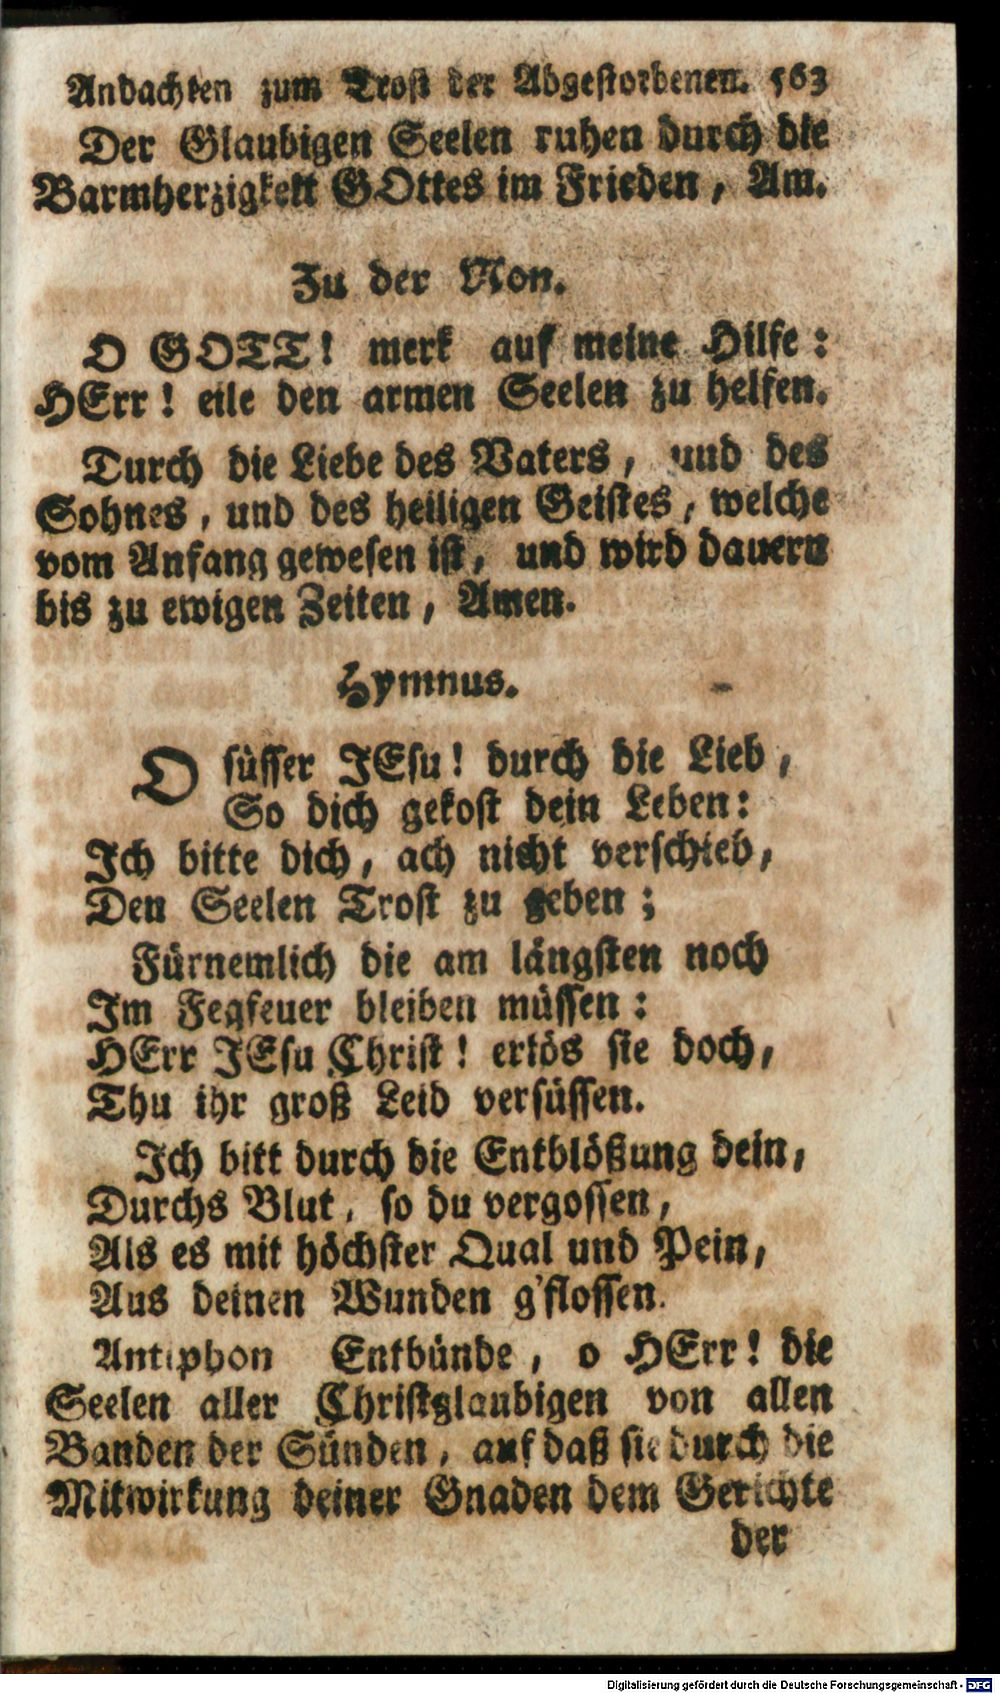 Andachten zum Trost der Abgestorbenen. 563
Der Glaubigen Seelen ruhen durch die
Barmherzigkeit GOttes im Frieden, Am.
Zu der Non.
O GOTT! merk auf meine Hilfe:
HErr! eile den armen Seelen zu helfen.
Durch die Liebe des Vaters, und des
Sohnes, und des heiligen Geistes, welche
vom Anfang gewesen ist, und wird dauern
bis zu ewigen Zeiten, Amen.
Hymnus.
O süsser JEsu! durch die Lieb,
So dich gekost dein Leben:
Ich bitte dich, ach nicht verschieb,
Den Seelen Trost zu geben;
Fürnemlich die am längsten noch
Im Fegfeuer bleiben müssen:
HErr JEsu Christ! erlös sie doch,
Thu ihr groß Leid versüssen.
Ich bitt durch die Entblößung dein,
Durchs Blut, so du vergossen,
Als es mit höchster Qual und Pein,
Aus deinen Wunden g'flossen.
Antiphon Entbünde, o HErr! die
Seelen aller Christglaubigen von allen
Banden der Sünden, auf daß sie durch die
Mitwirkung deiner Gnaden dem Gerichte
der
Digitalisierung gefördert durch die Deutsche Forschungsgemeinschaft - DFG